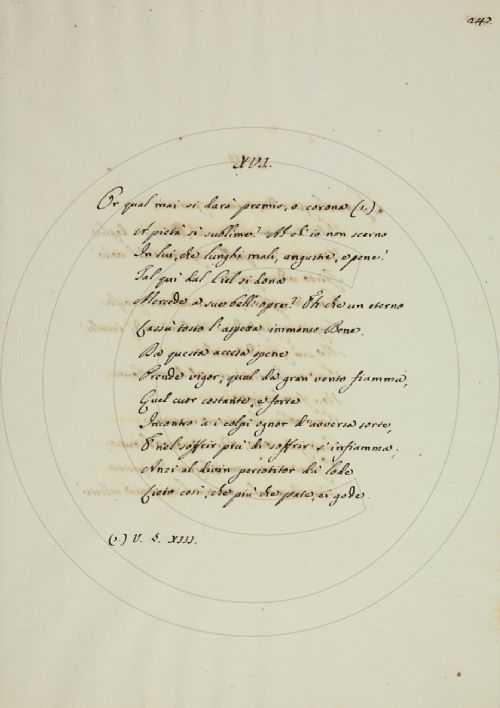 243.
XVI.
Or qual mai si darà premio, o corona (1.)
A pietà sì sublime? Ah ch'io non scerno
In lui, che lunghi mali, angustie, e pene!
Tal qui dal Ciel si dona
Mercede a sue bell'opre? Oh che un eterno
Lassù tosto l'aspetta immenso Bene.
Da questa accesa spene
Prende vigor, qual da gran vento fiamma,
Quel cuor costante, e forte
Incontro a i colpi ognor d'avversa sorte,
E nel soffrir più di soffrir s'infiamma.
Anzi al divin percotitor dà lode
Lieto così, che più che pate, ei gode.
(1.) V. §. XIII.